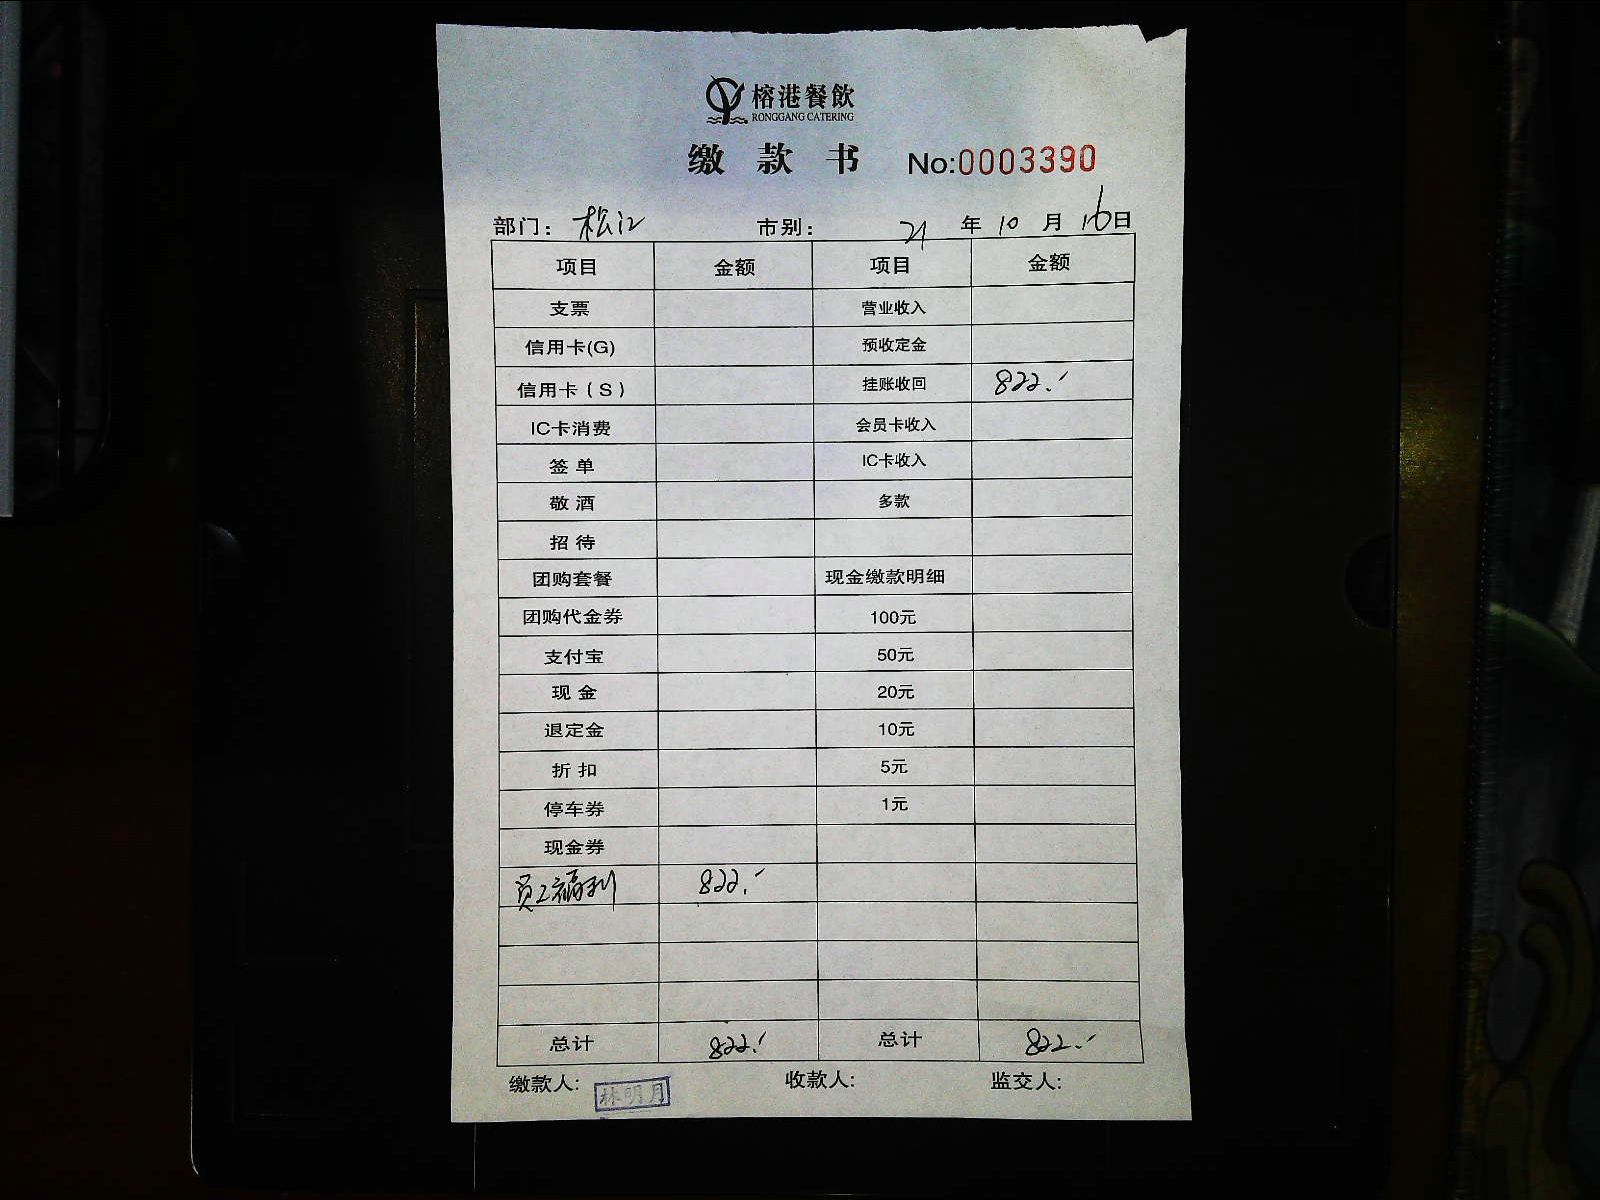 榕港餐飲
RONGGANG CATERING
缴款书 No:0003390
部门: 松江 市别: 21年10月16日
项目 金额 项目 金额
支票 营业收入
信用卡(G) 预收定金
信用卡(S) 挂账收回 822.-
IC卡消费 会员卡收入
签单 IC卡收入
敬酒 多款
招待
团购套餐 现金缴款明细
团购代金券 100元
支付宝 50元
现金 20元
退定金 10元
折扣 5元
停车券 1元
现金券
员工福利 822.-
总计 822.- 总计 822.-
缴款人: 林明月 收款人: 监交人: